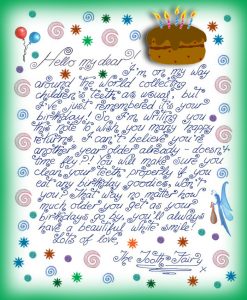 Hello my dear
I'm on my way
around the world collecting
children's teeth as usual, but
I've just remembered it's your
birthday! So I'm writing you
this note to wish you many happy
returns. I can't believe you're
another year older already - doesn't
time fly?! You will make sure you
clean your teeth properly if you
eat any birthday goodies, won't
you? That way no matter how
much older you get as your
birthdays go by, you'll always
have a beautiful white smile!
Lots of love,
The Tooth Fairy
x